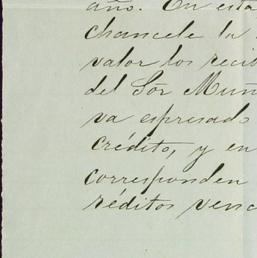 año. En esta
chancele la
valor los recib
del Sor Muñ
va espresado
crédito, y en
corresponden
réditos venc